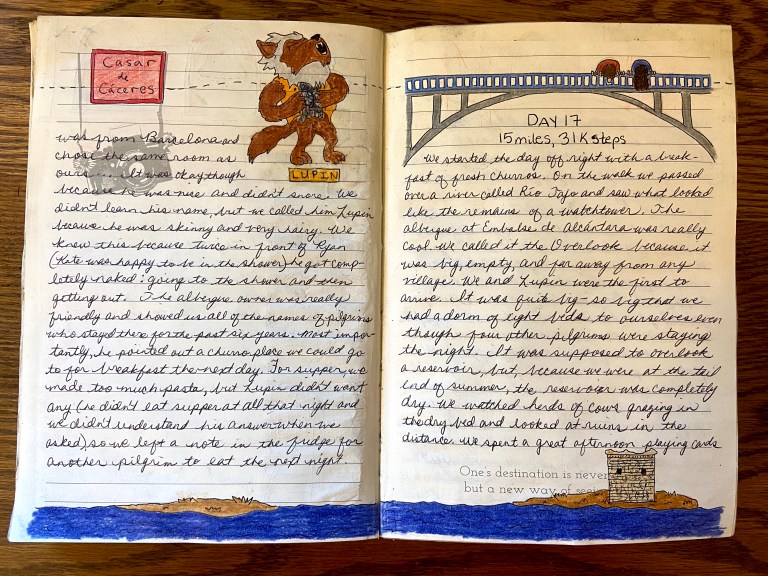 Casar
de
Cáceres
LUPIN
was from Barcelona and
chose the same room as
ours.... It was okay though
because he was nice and didn't snore. We
didn't learn his name, but we called him Lupin
because he was skinny and very hairy. We
know this because twice in front of Ryan
(Kate was happy to be in the shower) he got comp-
letely naked: going to the shower and then
getting out. The albergue owner was really
friendly and showed us all of the names of pilgrims
who stayed there for the past six years. Most impor-
tantly, he pointed out a churro place we could go
to for breakfast the next day. For supper, we
made too much pasta, but Lupin didn't want
any (he didn't eat supper at all that night and
we didn't understand his answer when we
asked) so we left a note in the fridge for
another pilgrim to eat the next night.
DAY 17
15 miles, 31K steps
We started the day off right with a break-
fast of fresh churros. On the walk we passed
over a river called Rio Tajo and saw what looked
like the remains of a watchtower. The
albergue at Embalse de Alcántara was really
cool. We called it the Overlook because it
was big, empty, and far away from any
village. We and Lupin were the first to
arrive. It was quite big - so big that we
had a dorm of eight beds to ourselves even
though four other pilgrims were staying
the night. It was supposed to overlook
a reservoir, but, because we were at the tail
end of summer, the reservoir was completely
dry. We watched herds of cows grazing in
the dry bed and looked at ruins in the
distance. We spent a great afternoon playing cards
One's destination is never
but a new way of